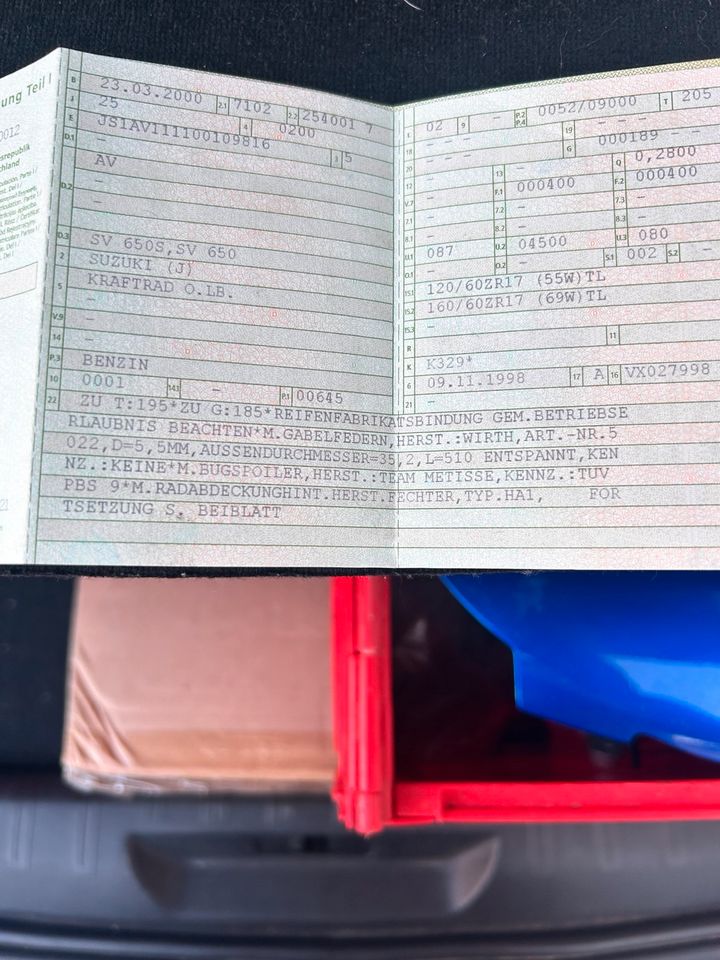 ung Teil I
0012
B 23.03.2000 2.1 7102 2.2 254001 7
J 25 4 0200
E JS1AV111100109816 3 5
D.1 AV
-
D.2 -
-
-
D.3 SV 650S,SV 650
2 SUZUKI (J)
5 KRAFTRAD O.LB.
-
V.9 -
14 -
P.3 BENZIN
10 0001 14.1 - P.1 00645
L 02 9 - P.2 P.4 0052/09000 T 205
18 - - - 19 - - -
G 000189 - -
20 - - - 13 - Q 0,2800
12 - F.1 000400 F.2 000400
V.7 - 7.2 - 7.3 -
7.1 - 8.2 - 8.3 -
8.1 -
U.1 087 U.2 04500 U.3 080
O.1 - O.2 - S.1 002 S.2 -
15.1 120/60ZR17 (55W)TL
15.2 160/60ZR17 (69W)TL
15.3 -
R 11
K K329*
6 09.11.1998 17 A 16 VX027998
21 -
22 ZU T:195*ZU G:185*REIFENFABRIKATSBINDUNG GEM.BETRIEBSE
RLAUBNIS BEACHTEN*M.GABELFEDERN,HERST.:WIRTH,ART.-NR.5
022,D=5,5MM,AUSSENDURCHMESSER=35,2,L=510 ENTSPANNT,KEN
NZ.:KEINE*M.BUGSPOILER,HERST.:TEAM METISSE,KENNZ.:TUV
PBS 9*M.RADABDECKUNGHINT.HERST.FECHTER,TYP.HA1, FOR
TSETZUNG S. BEIBLATT